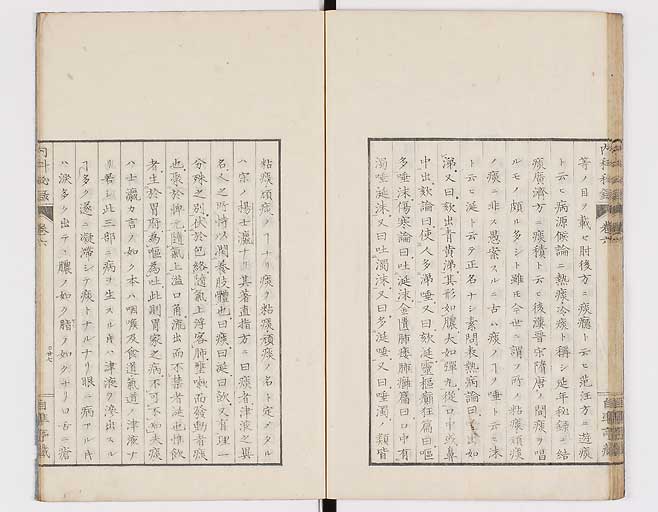 等ノ目ヲ載セ肘後方ニ痰癊ト云ヒ范汪方ニ遊痰
ト云ヒ病源候論ニ熱痰冷痰ト稱シ延年秘錄ニ結
痰廣濟方ニ痰積ト云ヒ後漢晋宋隋唐ノ間痰ヲ唱
ルモノ頗ル多シト雖モ今世ニ謂フ所ノ粘痰頑痰
ノ痰ニ非ス愚案スルニ古ハ痰ノ丁ヲ唾ト云ヒ沫
ト云ヒ涎ト云ヲ正名ナシ素問長熱病論曰出如
涕又曰欬出青黄涕其形如膿大如彈丸從口中或鼻
中出欬論曰使人多涕唾又曰欬涎靈樞癲狂篇曰嘔
多唾沫傷寒論曰吐涎沫金匱肺痿肺癰篇曰口中有
濁唾涎沫又曰吐濁沫又曰多涎唾又曰唾濁ノ類皆
粘痰頑痰ノ丁ナリ痰ヲ粘痰頑痰ノ名ト定メタル
ハ宗ノ楊士瀛ナリ其著直指方ニ曰痰者津液之異
名人之所恃以潤養肢體也曰痰曰涎曰飲又有理一
分殊之別伏於包絡隨氣上浮客肺壅嗽而發動者痰
也聚於脾元隨氣上溢口角流出而不禁者涎也惟飲
者生於胃府為嘔為吐此則胃家之病不可不知夫痰
ハ士瀛カ言ノ如ク本ハ咽喉及食道氣道ノ津液ナ
此三部ニ病ヲ生スル片ハ津液ヲ滲出スル
丁多ク遂ニ凝滞シテ痰トナルナリ眼ニ病アル片
ハ淚多ク出テ膿ノ如ク脂ノ如クナリ口舌ニ瘡
内科秘錄
卷六
自準亭藏